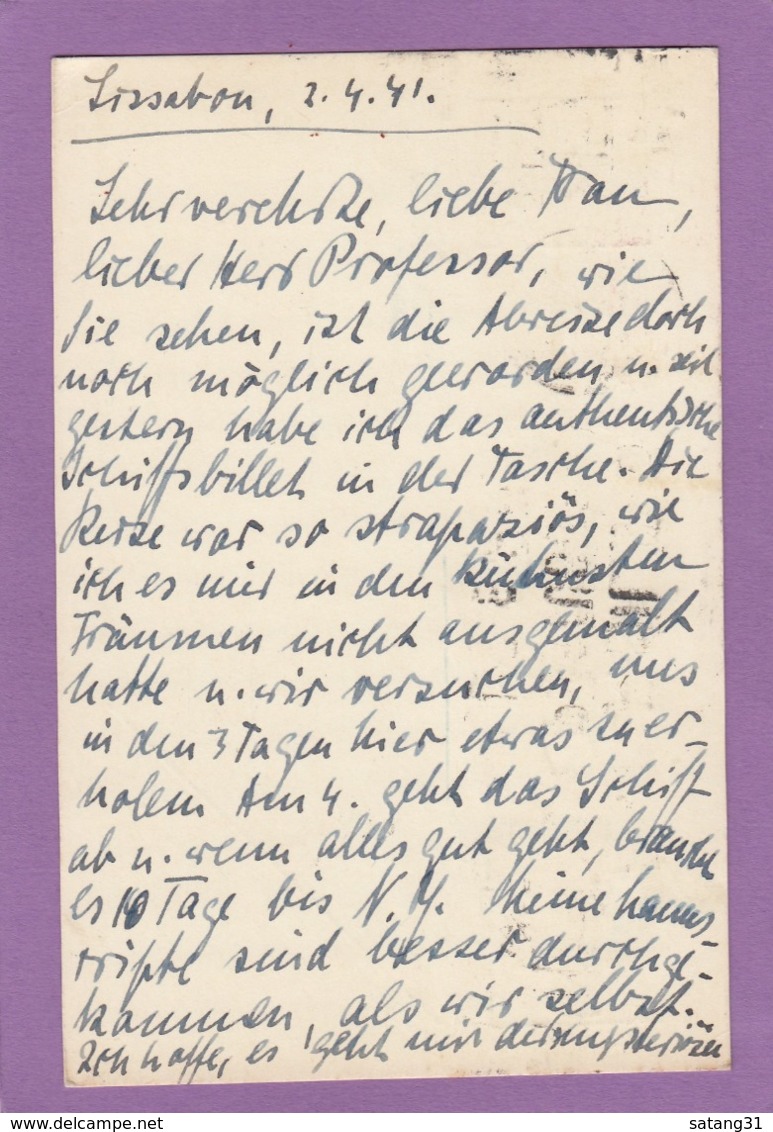 Lissabon, 2.4.41.
Sehr verehrte, liebe Frau,
lieber Herr Professor, wie
Sie sehen, ist die Abreise doch
noch möglich geworden u. seit
gestern habe ich das authentische
Schiffsbillet in der Tasche. Die
Reise war so strapaziös, wie
ich es mir in den kühnsten
Träumen nicht ausgemalt
hatte u. wir versuchen, uns
in den 3 Tagen hier etwas zu er-
holen. Am 4. geht das Schiff
ab u. wenn alles gut geht, braucht
es 10 Tage bis N.Y. Meine Manus
cripte sind besser durchge-
kommen, als wir selbst.
Ich hoffe, es geht mit der mysteriösen
satang31